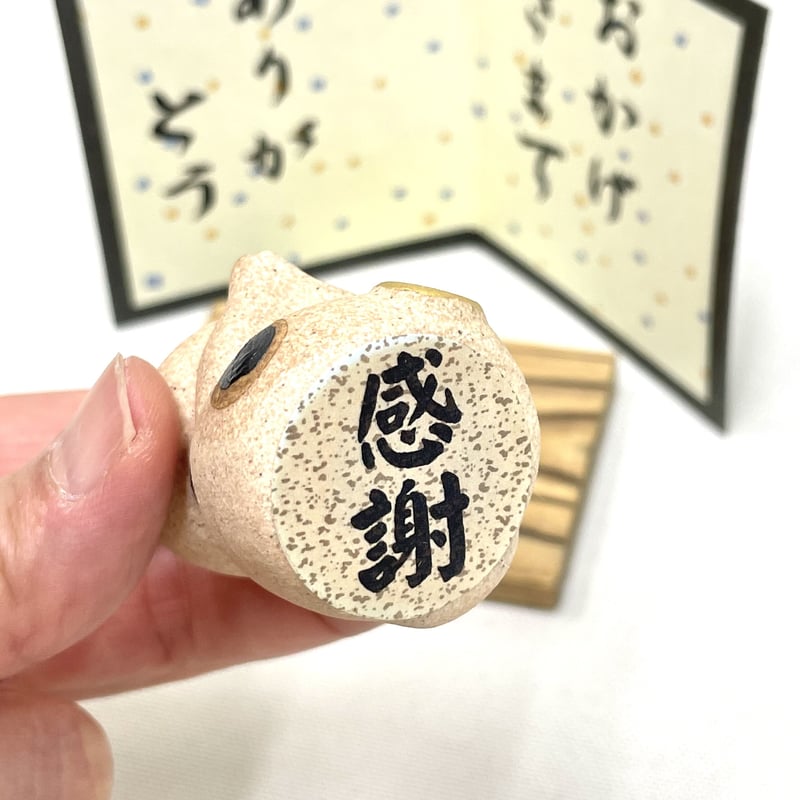 おかげ
さまで
ありが
とう
感謝